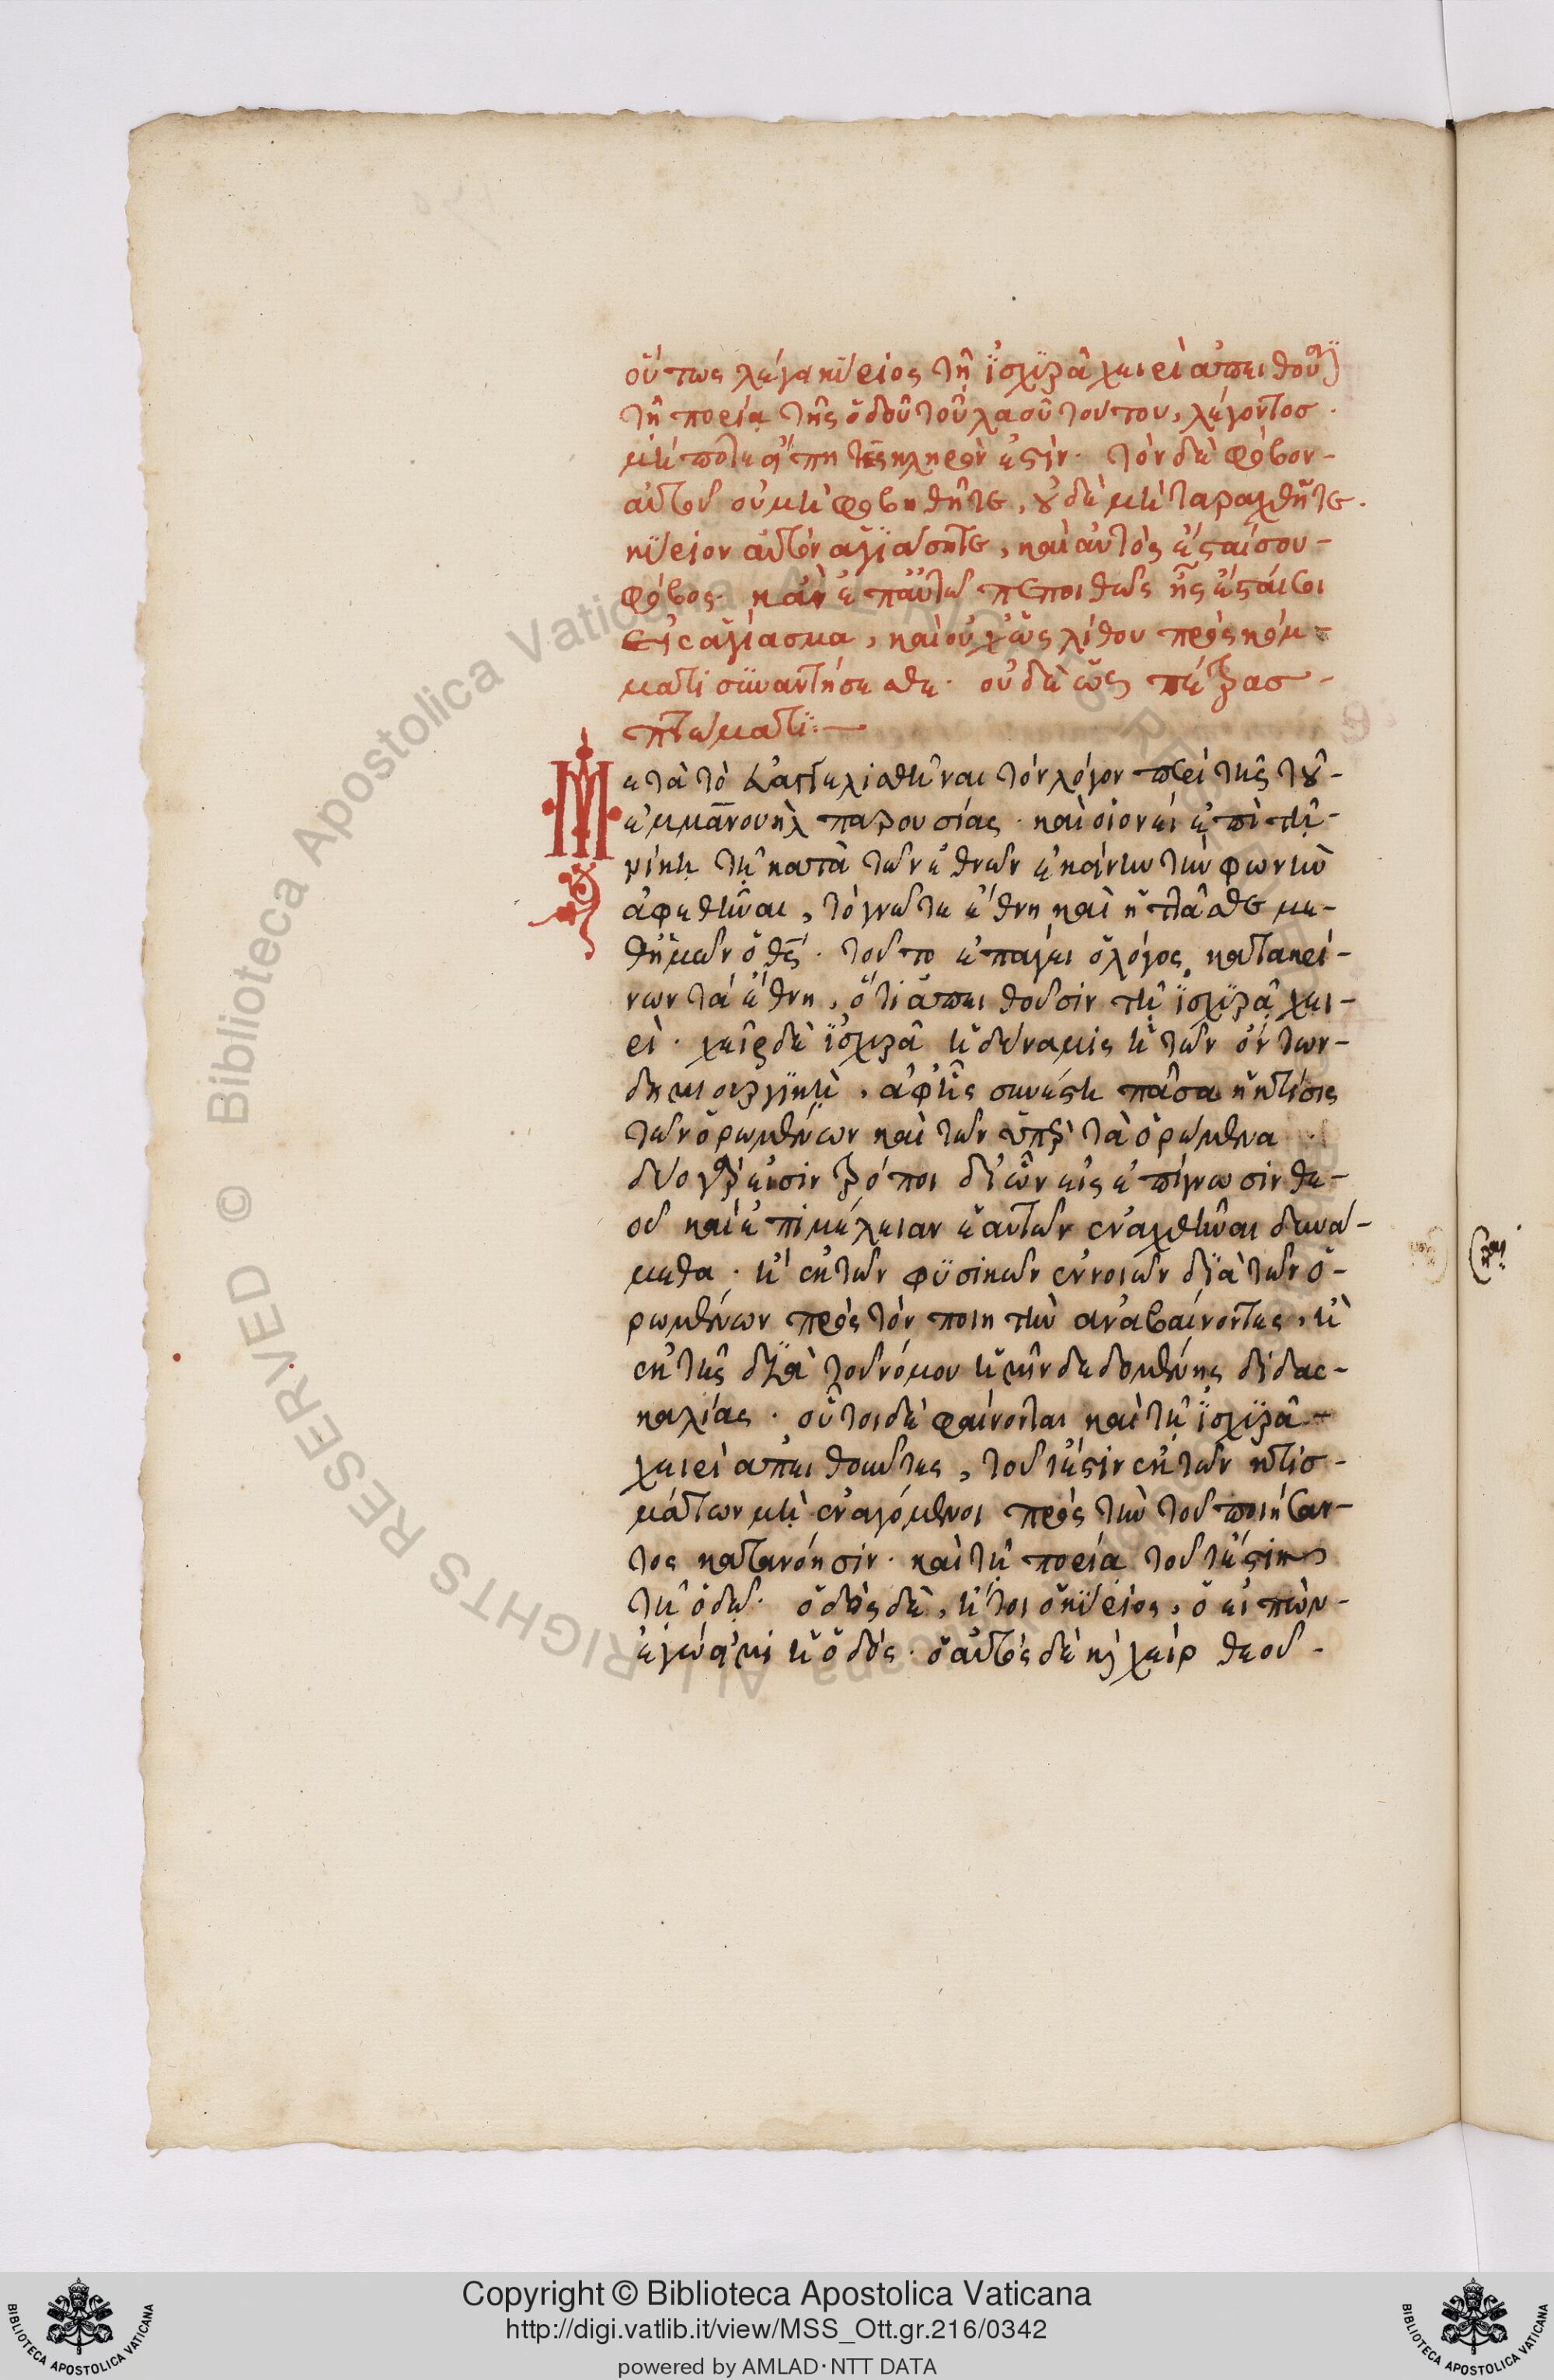 οὕτως λέγει κύριος τῇ ἰσχυρᾷ χειρὶ ἀπειθοῦσι
τῇ πορείᾳ τῆς ὁδοῦ τοῦ λαοῦ τούτου, λέγοντος.
μήποτε εἴπητε σκληρόν ἐστιν. τὸν δὲ φόβον-
αὐτοῦ οὐ μὴ φοβηθῆτε, οὐδὲ μὴ ταραχθῆτε.
κύριον αὐτὸν ἁγιάσητε, καὶ αὐτὸς ἔσται σου-
φόβος. κἂν ἐπ' αὐτῷ πεποιθὼς ᾖς ἔσται σοι
εἰς ἁγίασμα, καὶ οὐχ ὡς λίθου προσκόμ-
ματι συναντήσεσθε. οὐδὲ ὡς πέτρας-
πτώματι:—
Μετὰ τὸ εὐαγγελισθῆναι τὸν λόγον περὶ τῆς τοῦ-
ἐμμανουὴλ παρουσίας. καὶ οἱονεὶ ἐπὶ τῇ-
νίκῃ τῇ κατὰ τῶν ἐθνῶν ἐκείνην τὴν φωνὴν
ἀφεθῆναι, τὸ γνῶτε ἔθνη καὶ ἡττᾶσθε με-
θ' ἡμῶν ὁ θεός. τοῦτο ἐπάγει ὁ λόγος, κατακρί-
νων τὰ ἔθνη, ὅτι ἀπειθοῦσιν τῇ ἰσχυρᾷ χει-
ρὶ. χεὶρ δὲ ἰσχυρὰ ἡ δύναμις ἡ τῶν ὄντων-
δημιουργικὴ, ἀφ' ἧς συνέστη πᾶσα ἡ κτίσις
τῶν ὁρωμένων καὶ τῶν ὑπὲρ τὰ ὁρώμενα
δύο γάρ εἰσιν τρόποι δι' ὧν εἰς ἐπίγνωσιν θε-
οῦ καὶ ἐπιμέλειαν ἑαυτῶν ἐναχθῆναι δυνά-
μεθα. ἢ ἐκ τῶν φυσικῶν ἐννοιῶν διὰ τῶν ὁ-
ρωμένων πρὸς τὸν ποιητὴν ἀναβαίνοντες, ἢ
ἐκ τῆς διὰ τοῦ νόμου ἡμῖν δεδομένης διδας-
καλίας. οὗτοι δὲ φαίνονται καὶ τῇ ἰσχυρᾷ-
χειρὶ ἀπειθοῦντες, τουτέστιν ἐκ τῶν κτισ-
μάτων μὴ ἐναγόμενοι πρὸς τὴν τοῦ ποιήσαν-
τος κατανόησιν. καὶ τῇ πορείᾳ τουτέστιν
τῇ ὁδῷ. ὁδὸς δὲ, ἤτοι ὁ κύριος, ὁ εἰπὼν-
ἐγώ εἰμι ἡ ὁδός. ὁ αὐτὸς δὲ καὶ χεὶρ θεοῦ-
Copyright © Biblioteca Apostolica Vaticana
http://digi.vatlib.it/view/MSS_Ott.gr.216/0342
powered by AMLAD·NTT DATA